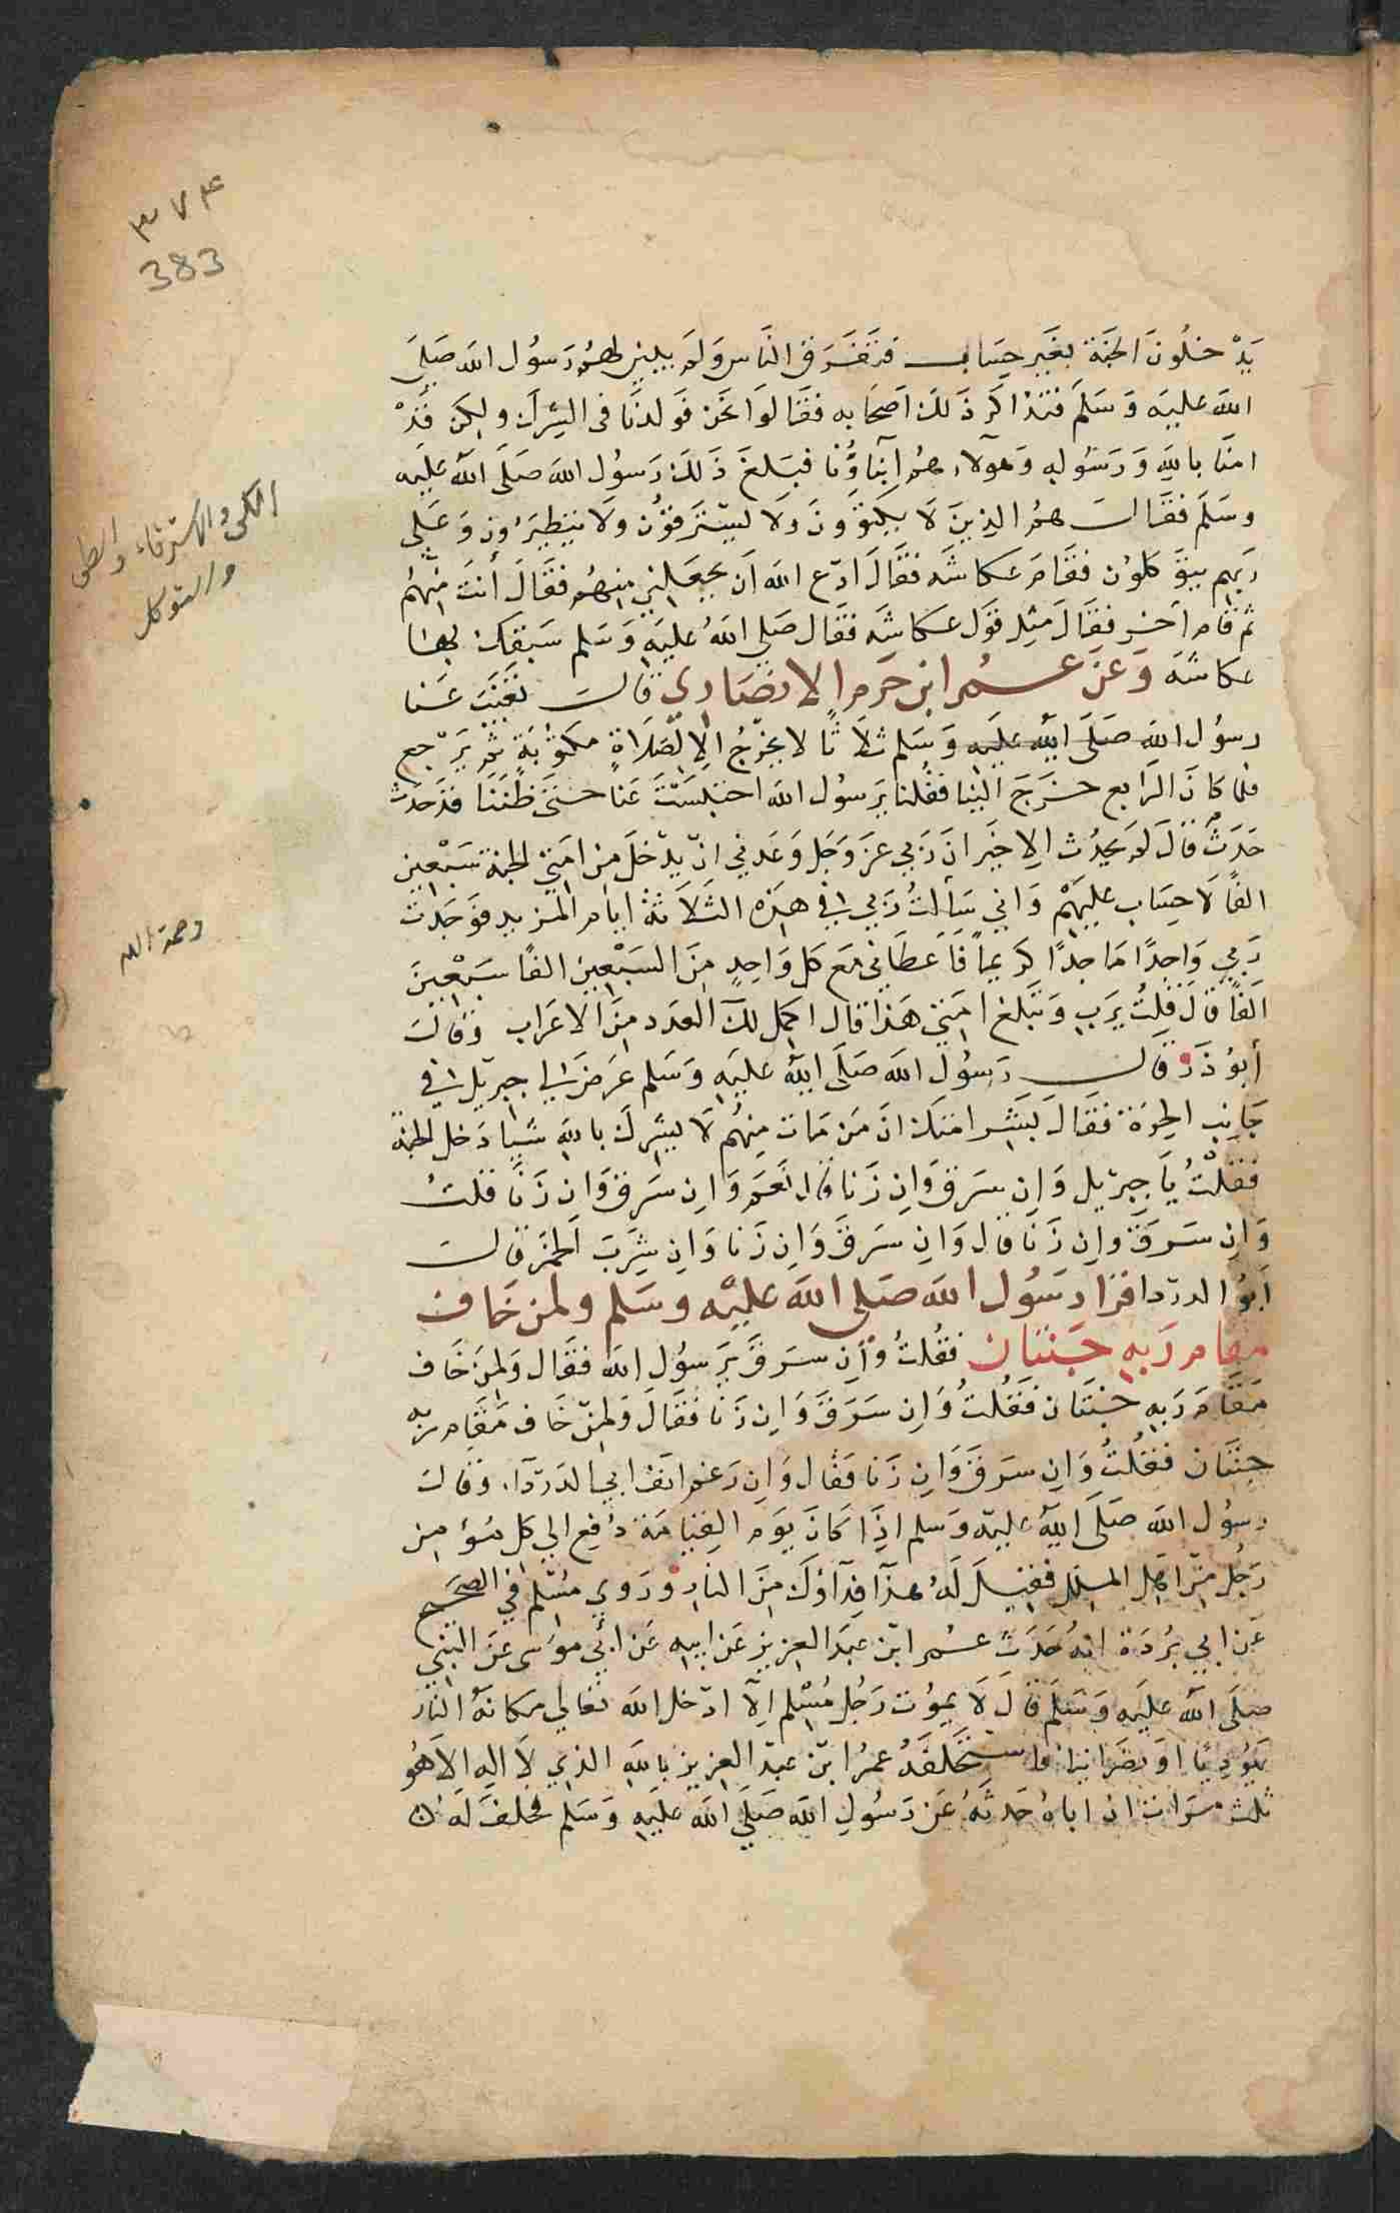 ٣٧٤
383
يَدْخلُونَ الجَنَة بغَيْر حِسَاب فتَفَرَق النَاس وَلَم يبين لهُم رَسُول الله صَلى
الله عليَه وَسَلمَ فتذاكرَ ذَلكَ اَصحَابه فقالوا نحَن فوَلدنَا فى الشِرك ولكِن قَدْ
امنَا باللهِ وَرَسُولهِ وَهولآء هُم ابَنآوُنا فبَلغَ ذَلكَ رَسُول الله صَلَى اللهُ علَيه
وسَلمَ فقَالَ همُ الذينَ لَا يكتوَونَ ولا يسْترَقوُن ولَا يتطيَرَوُن وَعَلى
رَبهم يتوَكلوُن فقامَ عكاشَه فقالَ ادْع الله اَن يجعَلني منهُم فقالَ أنتَ منْهمُ
ثم قام اَخر فقالَ مثِل قوَل عكاشَه فقال صَلي اللهُ عليَهِ وَسَلم سَبقك بهَا
عكاشَه وَعَن عـمُر ابْن حَزم الانصَاري قالَ تغَيَبَ عَنا
رسوُل الله صَلَى اللهُ عليَهِ وَسَلم ثلَاثًا لا يخرُجُ الِا لصَلاةٍ مكتوْبَةٍ ثم يَرَجع
فلما كانَ الرَابع خرَجَ الَينا فقلنا يَرسوُل الله احتبسَتَ عَنا حتى ظنَنَا قدَ حَدث
حَدَثٌ قالَ لَم يحدُث الِا خيَر انَ رَبي عزَ وَجَل وَعَدني انْ يدْخلَ منِ امتي الجَنة سَبْعين
الفًا لَا حِسَاب عليَهمْ وَاني سَألتُ رَبي في هَذِه الثَلاثة ايام المزيد فوَجَدت
رَبي وَاحدًا مَاجدًا كرَيمًا فأَعطَاني مَع كل وَاحِدٍ مِنَ السَبْعين الفًا سَبْعينَ
اَلفًا قالَ قلِتُ يَرَب وَتبَلغ امتي هَذا قال اكمل لكَ العَدَد منَ الاعرَاب وَقالَ
أبوُ ذَر قالَ رَسُولَ الله صَلَى اللهُ عليَه وَسَلم عَرَضَ لي جبريْل في
جَانِب الحرَة فقالَ بَشِر امتكَ انَ مَن مَات منِهُم لَا يشرِك باللهِ شيا دَخل الجنة
فقلْتُ يَا جبْريل وَان سَرقَ وَان زَنا قال نعَم وَان سَرقَ وَان زَنَا قلتُ
وَان سَرَقَ وان زَنَا قال وَان سَرَقَ وَان زَنا وَان شَرِبَ الخمَرَ قالَ
اَبوُ الدردا قرَا رسُول الله صَلى الله عليْه وسَلم ولمَن خَاف
مقام رَبهِ جَنتان فقُلتُ وَاِن سرَق يَرَسوُل الله فقَال وَلمَن خَاف
مَقامَ رَبهِ جَنتَان فقَلُتُ وَان سَرَقَ وَان زَنَا فقالَ وَلمن خَاف مَقام ربه
جَنتَان فقلُتُ وَان سرَقَ وَان زَنا فقال وَان رَغم انفُ ابي الدَرْدَآ، وَقالَ
رسوُل الله صَلَى اللهُ عليَه وَسَلم اذِا كانَ يوَم القيامَة دُفع الي كل مُؤمِن
رَجُل منْ اهَل الملِل فقيلَ لَهُ هذآ فدآؤكَ مِنَ النار وَرَوي مُسْلم في الصَحيح
عَن ابي برُدَة انهُ حَدَثَ عـمُر ابْن عَبدَ العزِيز عَن ابيهِ عَن ابي موسَى عَنَ النَبي
صَلَى اللهُ عليَهِ وَسَلَم قال لَا يموُت رَجُل مُسْلم اِلَا ادْخل الله تعالي مكانهُ النار
يهوُديًا اوَ نصرَانيا فاسْتحَلَفَهُ عمرُ ابْن عبْد العزيز باللهِ الذي لَا الِه اِلَا هُو
ثلث مَرَات ان اباهُ حَدثهُ عَن رَسُولِ الله صَلَى الله عليَهِ وَسَلم فحلفَ لَهُ
الكى والاسترقاء والطير
والتوكل
رحمة الله